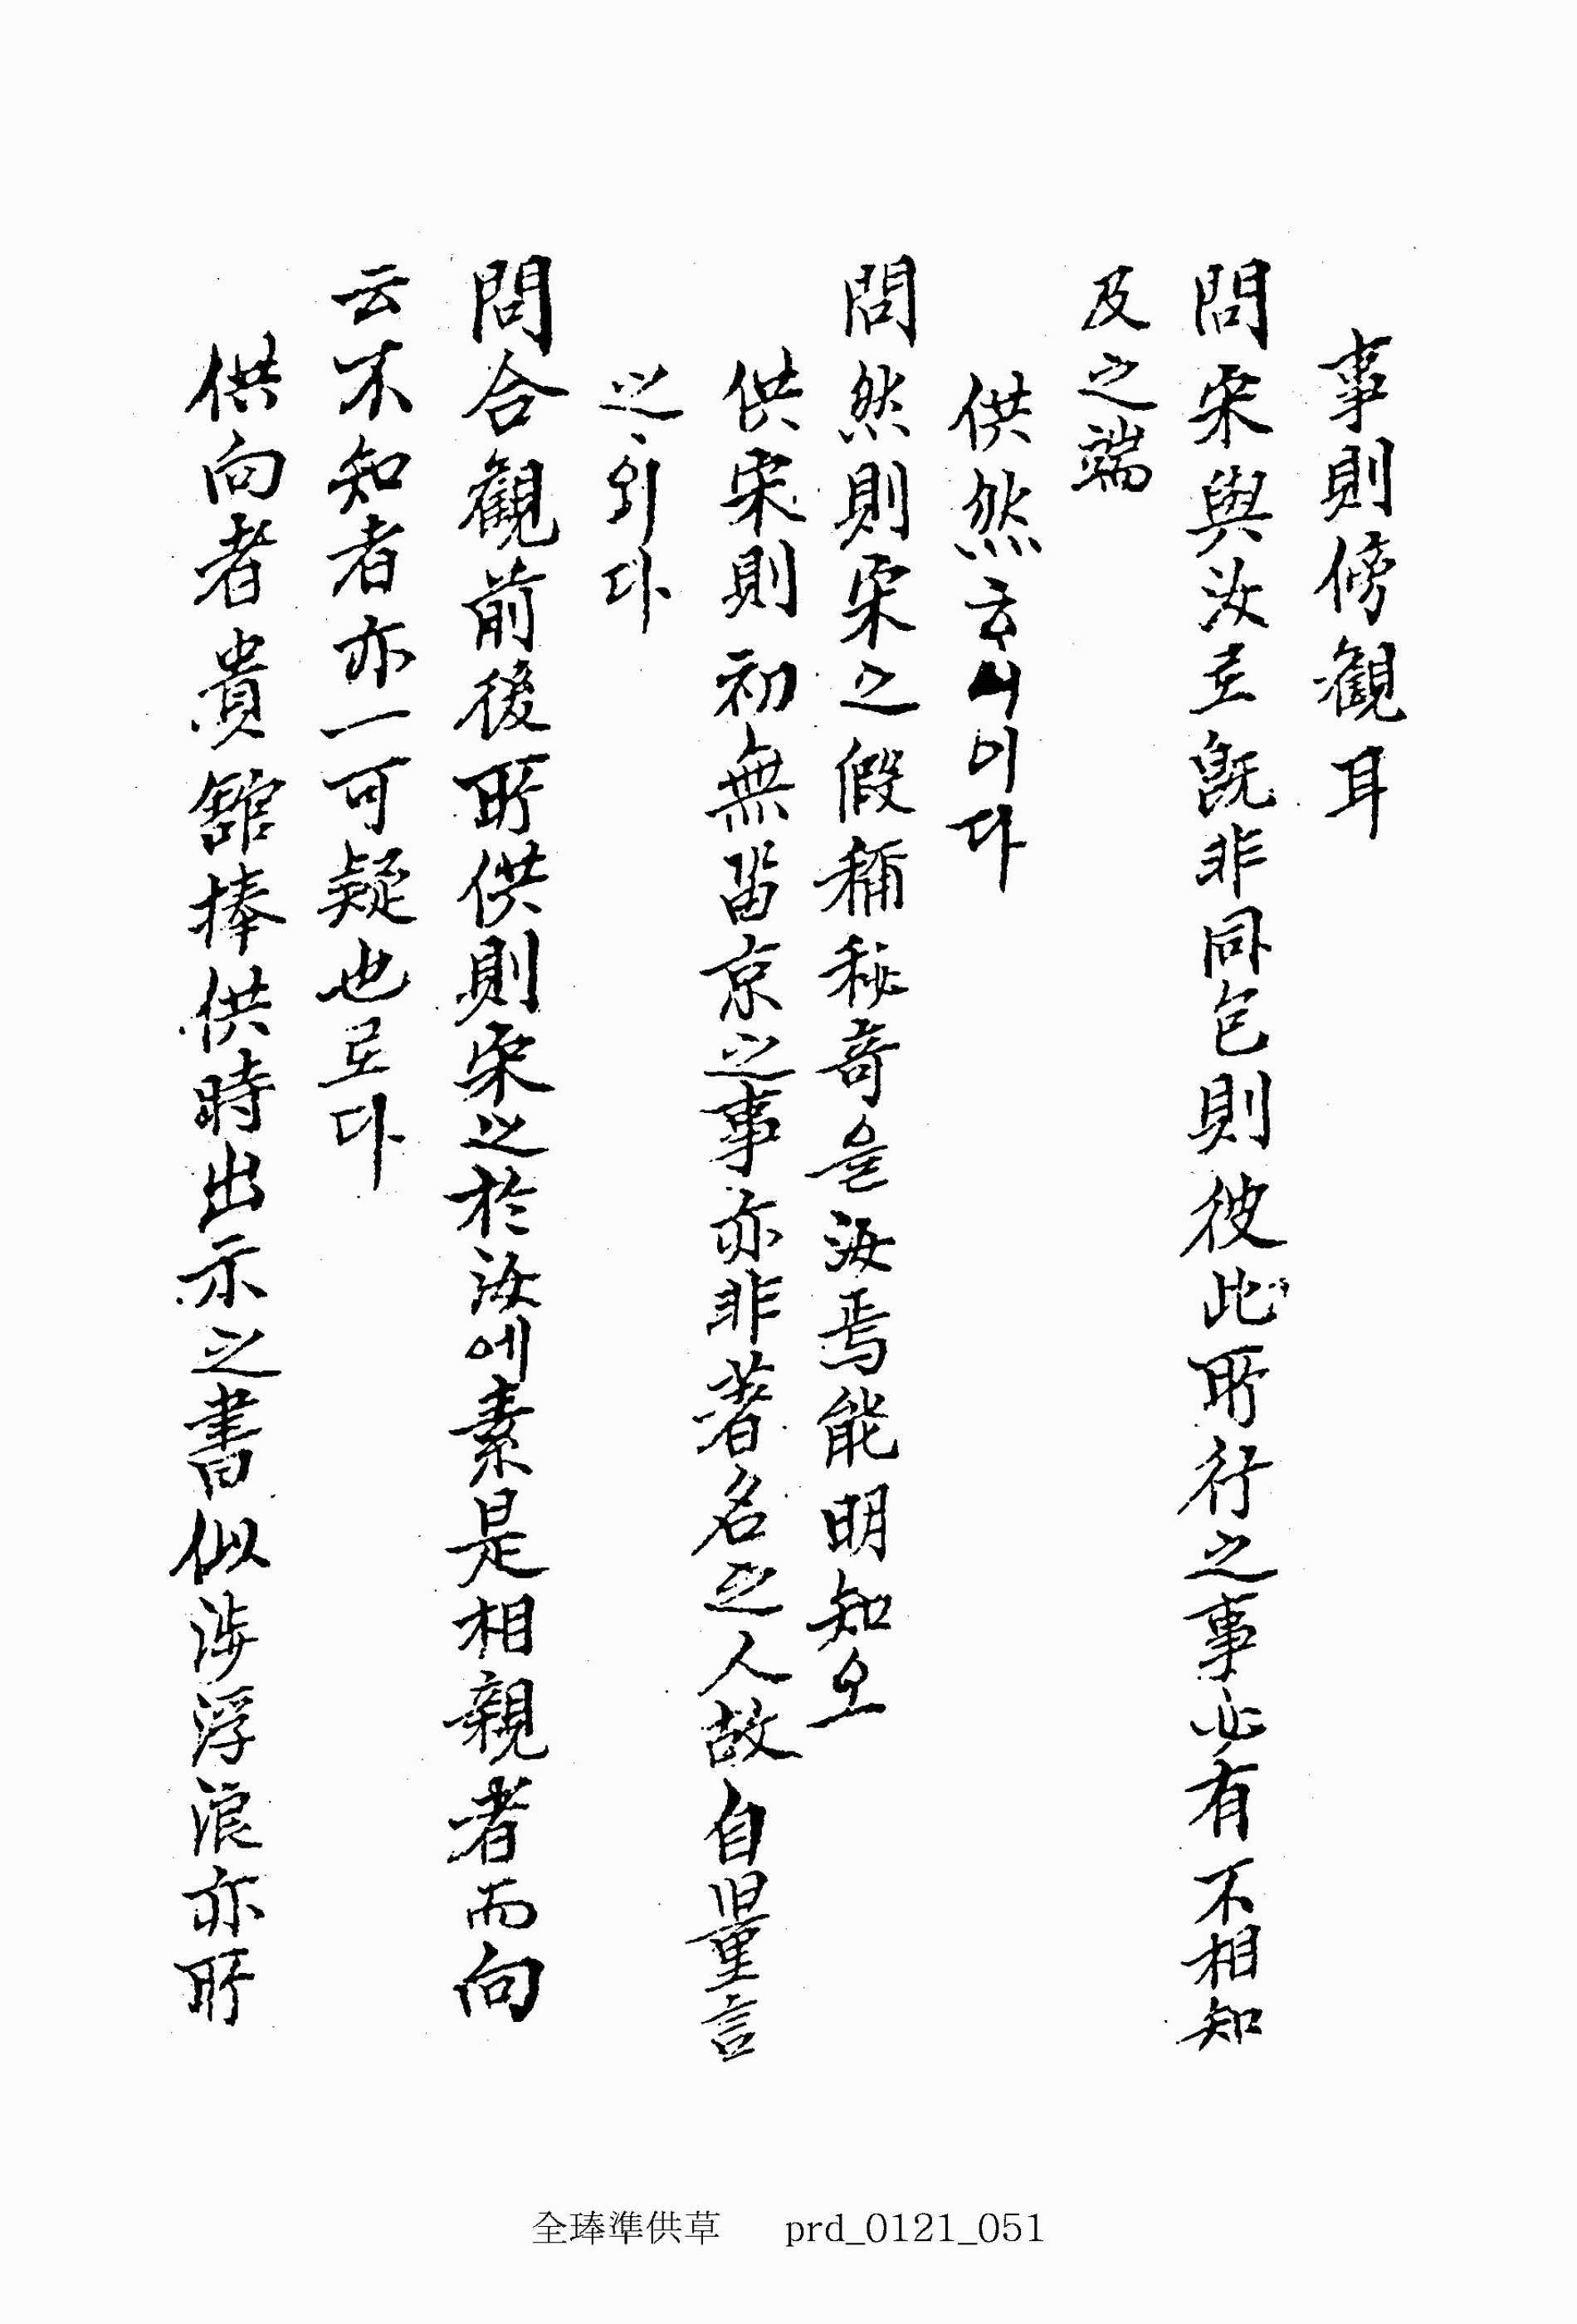 事則傍觀耳
問宋與汝로旣非同包則彼此所行之事必有不相知
及之端
供然ᄒᆞ니이다
問然則宋之假稱秘奇을汝焉能明知오
供宋則初無留京之事亦非著名之人故自量言
之외다
問合觀前後所供則宋之於汝에素是相親者而向
云不知者亦一可疑也로다
供向者貴館捧供時出示之書似涉浮浪亦所
全琫準供草 prd_0121_051